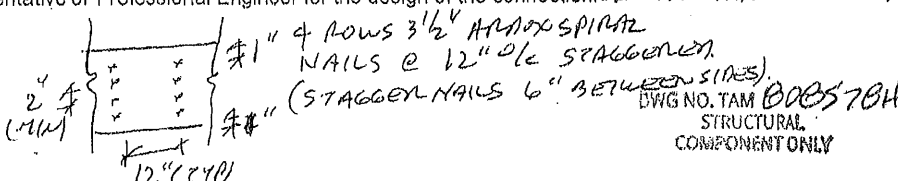 ntative of Professional Engineer for the design of the connection
1" 4 ROWS 3 1/2" ARDOX SPIRAL
NAILS @ 12" O/C STAGGERED.
2" (MIN)
1" (STAGGER NAILS 6" BETWEEN SIDES).
DWG NO. TAM
STRUCTURAL
COMPONENT ONLY
12" (TYP)